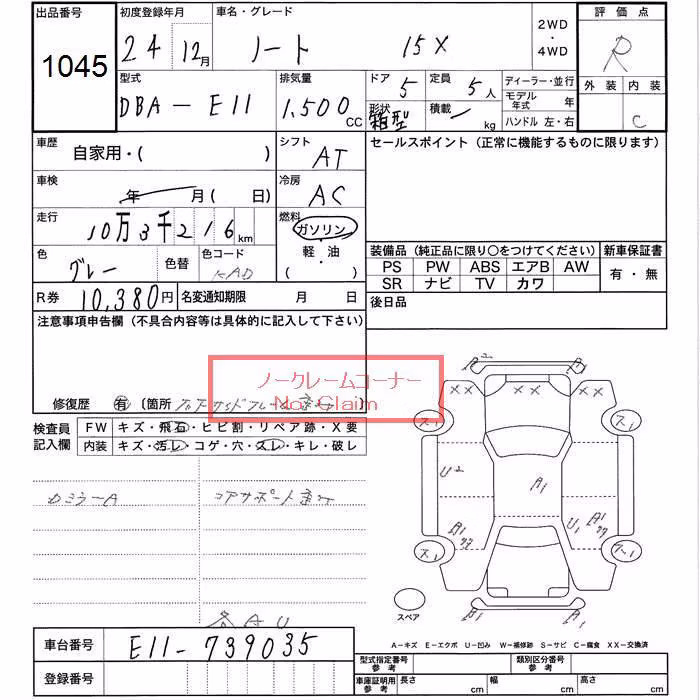 出品番号 初度登録年月 車名・グレード 2WD・4WD 評価点
1045 24 12月 ノート 15X R
型式 排気量 ドア 5 定員 5人 ディーラー・並行 外装 内装
DBA-E11 1,500CC 形状 箱型 積載 kg モデル年式 年 C
ハンドル 左・右
車歴 自家用・( ) シフト AT セールスポイント (正常に機能するものに限ります)
車検 年 月( 日) 冷房 AC
走行 10万3千216km 燃料 ガソリン
軽・油
( )
色 グレー 色替 色コード KAD
装備品 (純正品に限り○をつけてください) 新車保証書
PS PW ABS エアB AW 有・無
SR ナビ TV カワ
R券 10,380円 名変通知期限 月 日 後日品
注意事項申告欄 (不具合内容等は具体的に記入して下さい)
ノークレームコーナー
No Claim
修復歴 有 [箇所
検査員記入欄 FW キズ・飛石・ヒビ割・リペア跡・X要
内装 キズ・汚レ・コゲ・穴・スレ・キレ・破レ
A2
XX XX XX
ス1 ス1
U2 A1
A1 U1 A1
ス1 ス1
スペア
B1 B1
各AU
A-キズ E-エクボ U-凹み W-補修跡 S-サビ C-腐食 XX-交換済
車台番号 E11-739035
登録番号
型式指定番号 参考 類別区分番号 参考
車庫証明用 参考 長さ cm 幅 cm 高さ cm